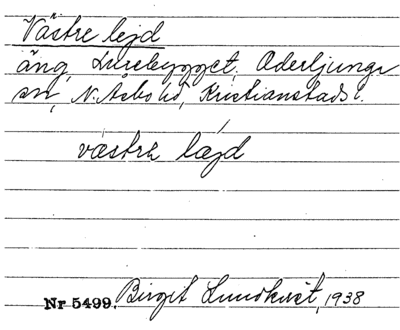 Västre lejd
äng, Lurebygget, Oderljunga
sn, N. Åsbo hd, Kristianstads l.
västrə läjd
Nr 5499. Birgit Lundkvist, 1938